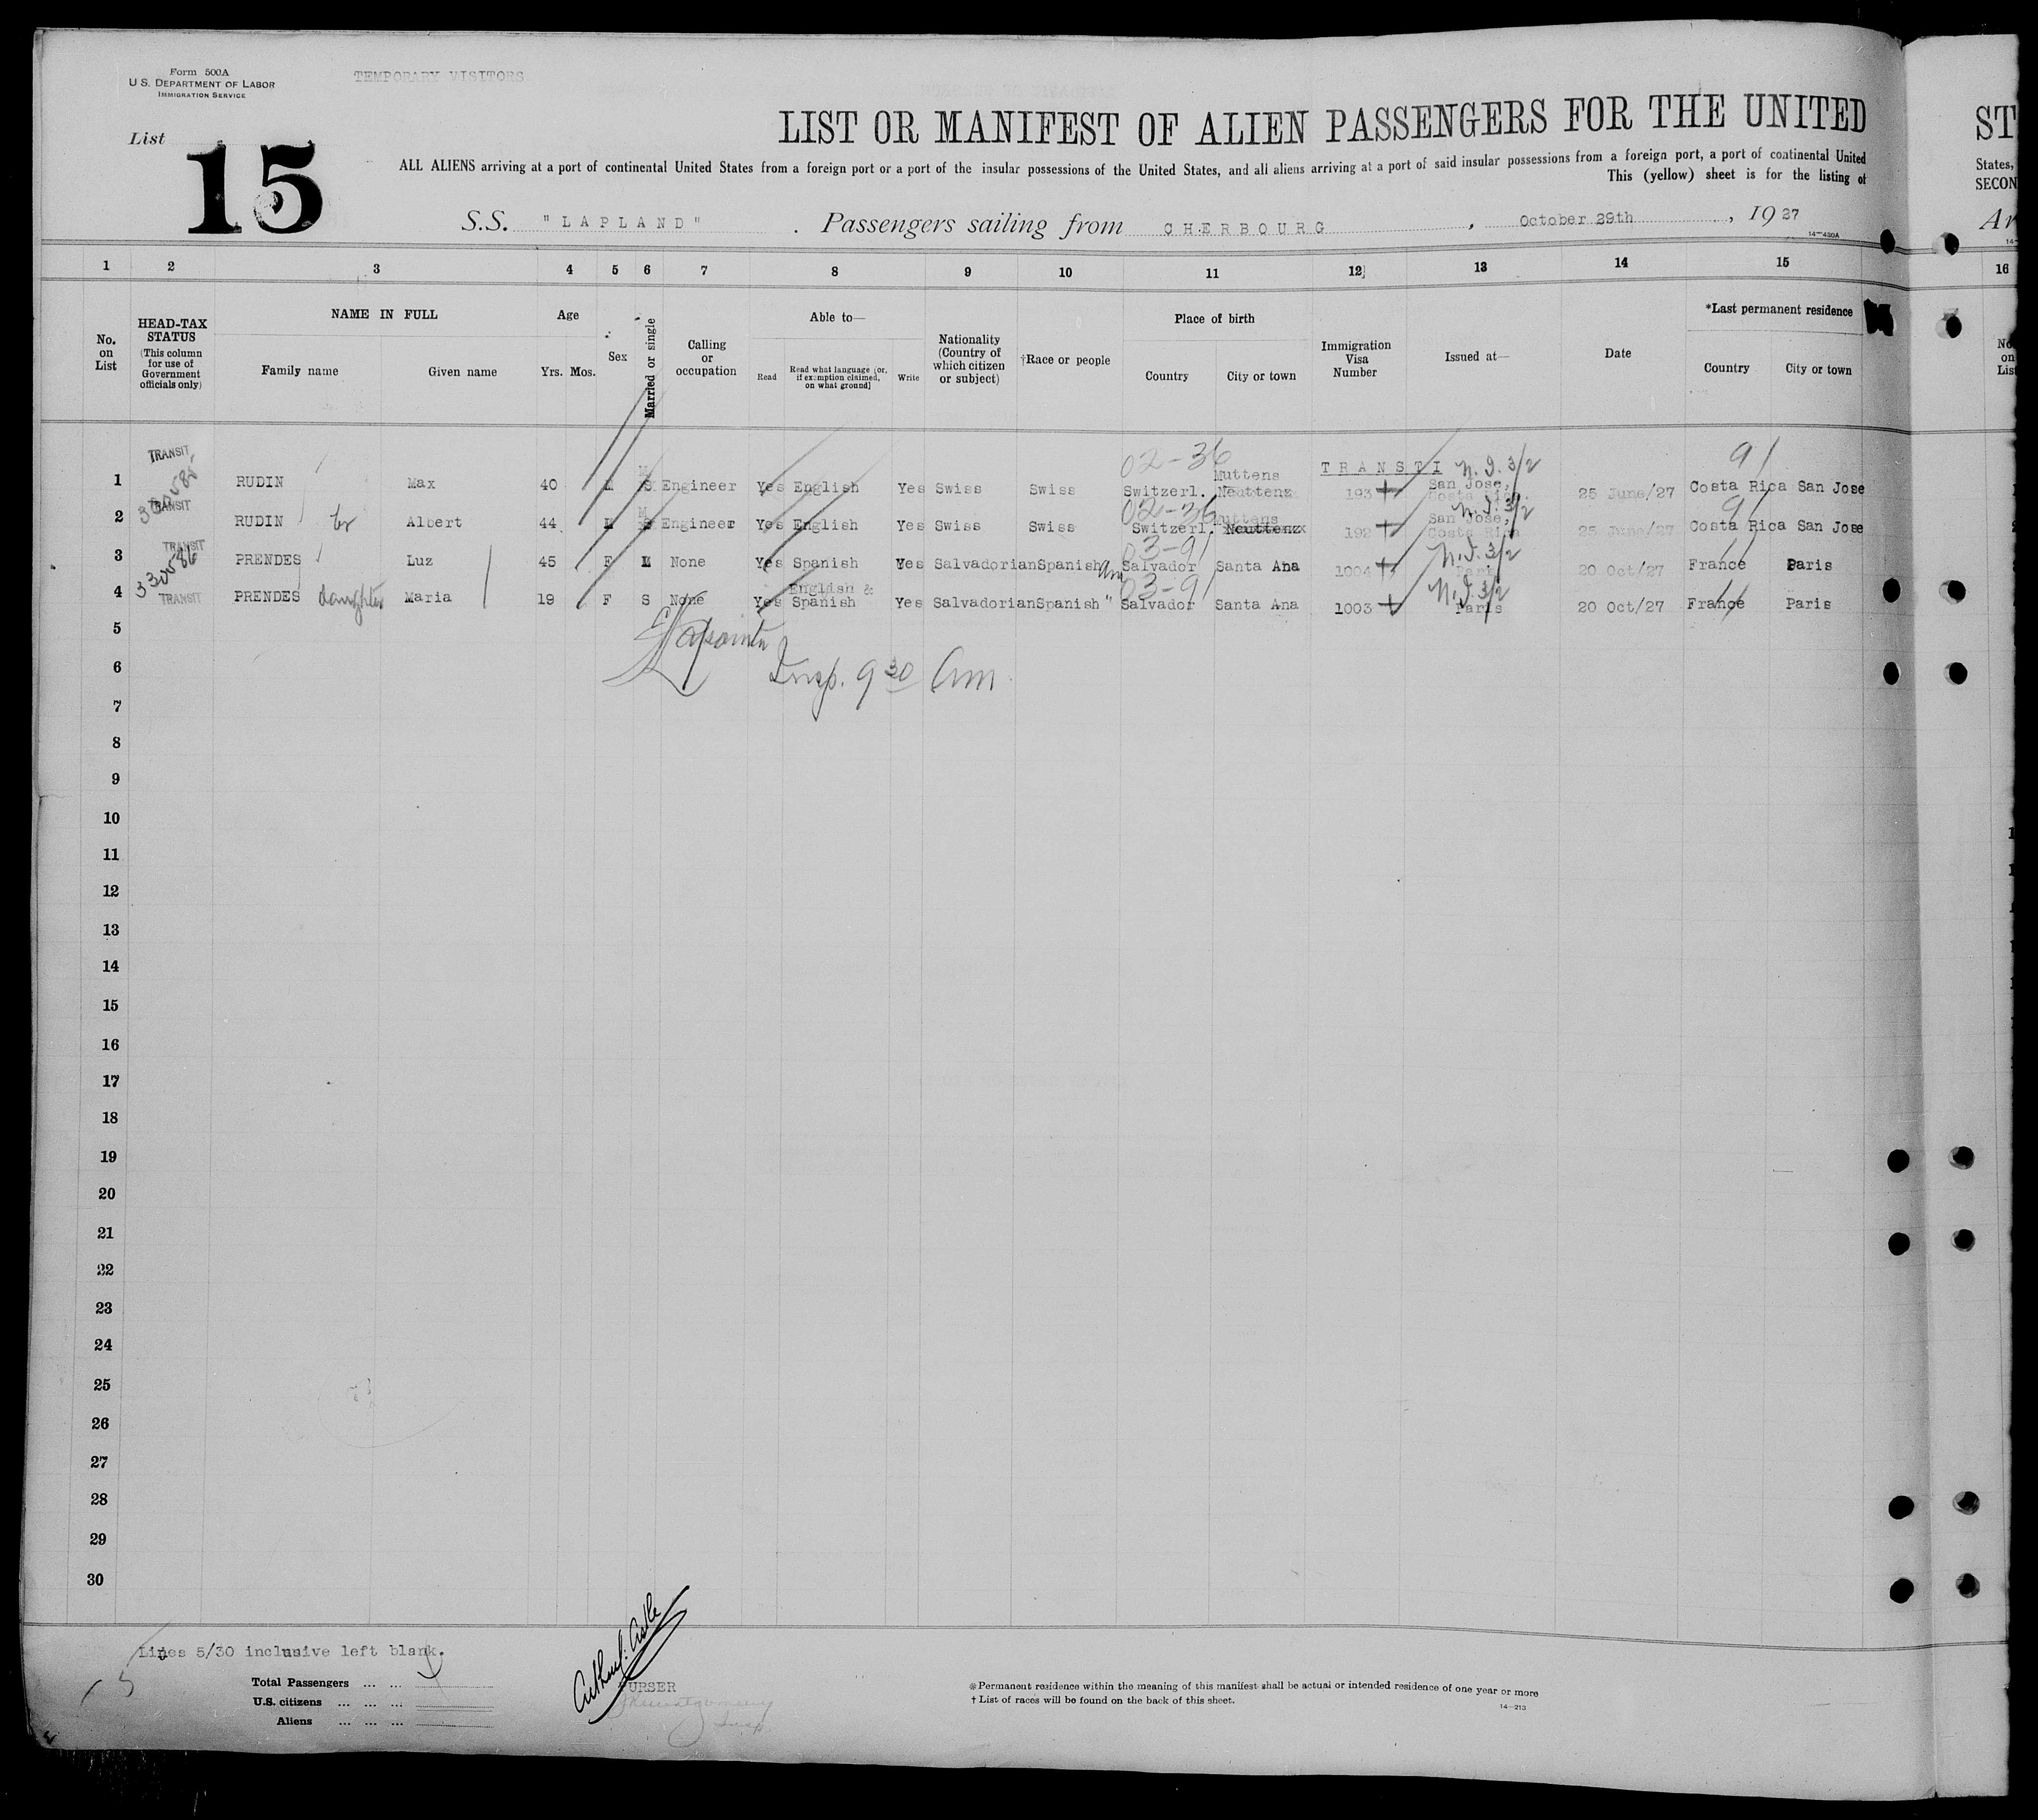 Form 500A
U. S. DEPARTMENT OF LABOR
IMMIGRATION SERVICE
TEMPORARY VISITORS
List 15
LIST OR MANIFEST OF ALIEN PASSENGERS FOR THE UNITED
ALL ALIENS arriving at a port of continental United States from a foreign port or a port of the insular possessions of the United States, and all aliens arriving at a port of said insular possessions from a foreign port, a port of continental United
This (yellow) sheet is for the listing of
S.S. "LAPLAND" . Passengers sailing from CHERBOURG , October 29th , 1927
14—430A
ST
States,
SECON
Ar
1 2 3 4 5 6 7 8 9 10 11 12 13 14 15 16
No. on List
HEAD-TAX STATUS
(This column for use of Government officials only)
NAME IN FULL
Family name Given name
Age
Yrs. Mos.
Sex
Married or single
Calling or occupation
Able to—
Read
Read what language [or, if exemption claimed, on what ground]
Write
Nationality (Country of which citizen or subject)
†Race or people
Place of birth
Country City or town
Immigration Visa Number
Issued at—
Date
*Last permanent residence
Country City or town
TRANSIT 02-36 Muttens TRANSTI N.I. 3/2 91
1 RUDIN Max 40 M Engineer Yes English Yes Swiss Swiss Switzerl. Neuttenz 193 San Jose, Costa Rica. 25 June/27 Costa Rica San Jose
TRANSIT 02-36 Muttens N.I. 3/2 91
2 RUDIN br Albert 44 M M Engineer Yes English Yes Swiss Swiss Switzerl. Neuttenz 192 San Jose, Costa Rica 25 June/27 Costa Rica San Jose
TRANSIT 03-91 N.I. 3/2
3 PRENDES Luz 45 F M None Yes Spanish Yes Salvadorian Spanish Am Salvador Santa Ana 1004 Paris 20 Oct/27 France Paris
330586 English & 03-91 N.I. 3/2
4 TRANSIT PRENDES daughter Maria 19 F S None Yes Spanish Yes Salvadorian Spanish " Salvador Santa Ana 1003 Paris 20 Oct/27 France Paris
5
6 Insp. 9 30 Am
7
8
9
10
11
12
13
14
15
16
17
18
19
20
21
22
23
24
25
26
27
28
29
30
Lines 5/30 inclusive left blank.
Total Passengers ... ...
U.S. citizens ... ... ...
Aliens ... ... ...
PURSER
Insp.
*Permanent residence within the meaning of this manifest shall be actual or intended residence of one year or more
† List of races will be found on the back of this sheet.
14—213